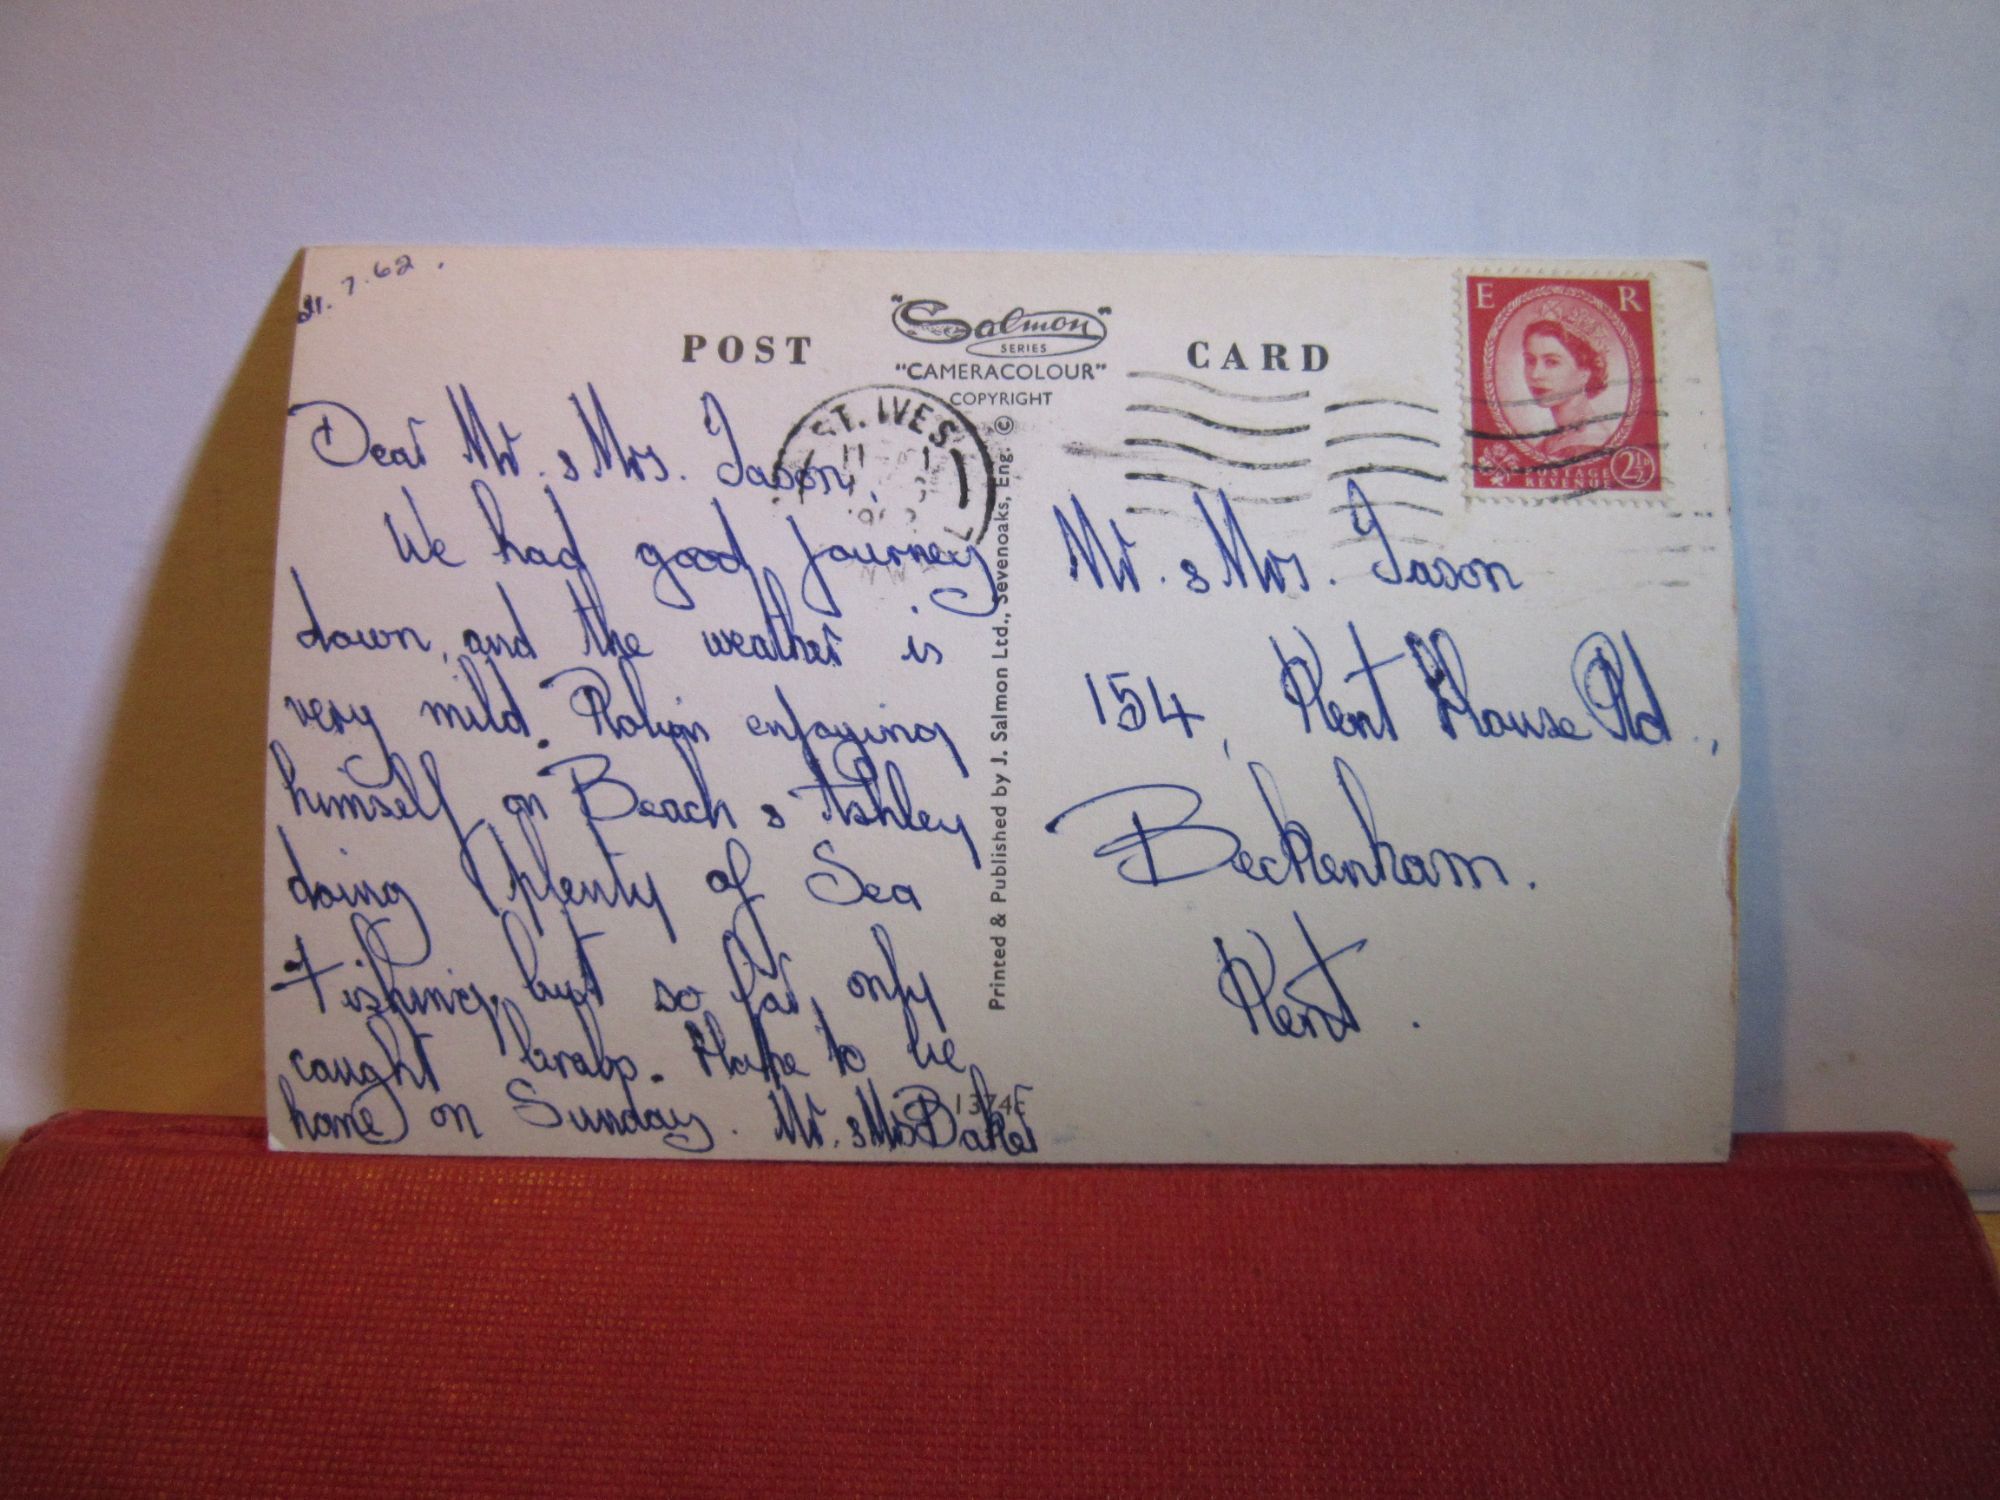 7.62.
POST CARD
"Salmon"
SERIES
"CAMERACOLOUR"
COPYRIGHT ©
ST. IVES
Dear Mr. & Mrs. Jason,
We had good journey
down, and the weather is
very mild. Robin enjoying
himself on Beach & Ashley
doing plenty of Sea
Fishing, but so far, only
caught Crabs. Hope to be
home on Sunday. Mr. & Mrs Baker
1374c
Printed & Published by J. Salmon Ltd., Sevenoaks, Eng.
E R
POSTAGE
REVENUE
2½D
Mr. & Mrs. Jason
154, Kent House Rd.,
Beckenham.
Kent.